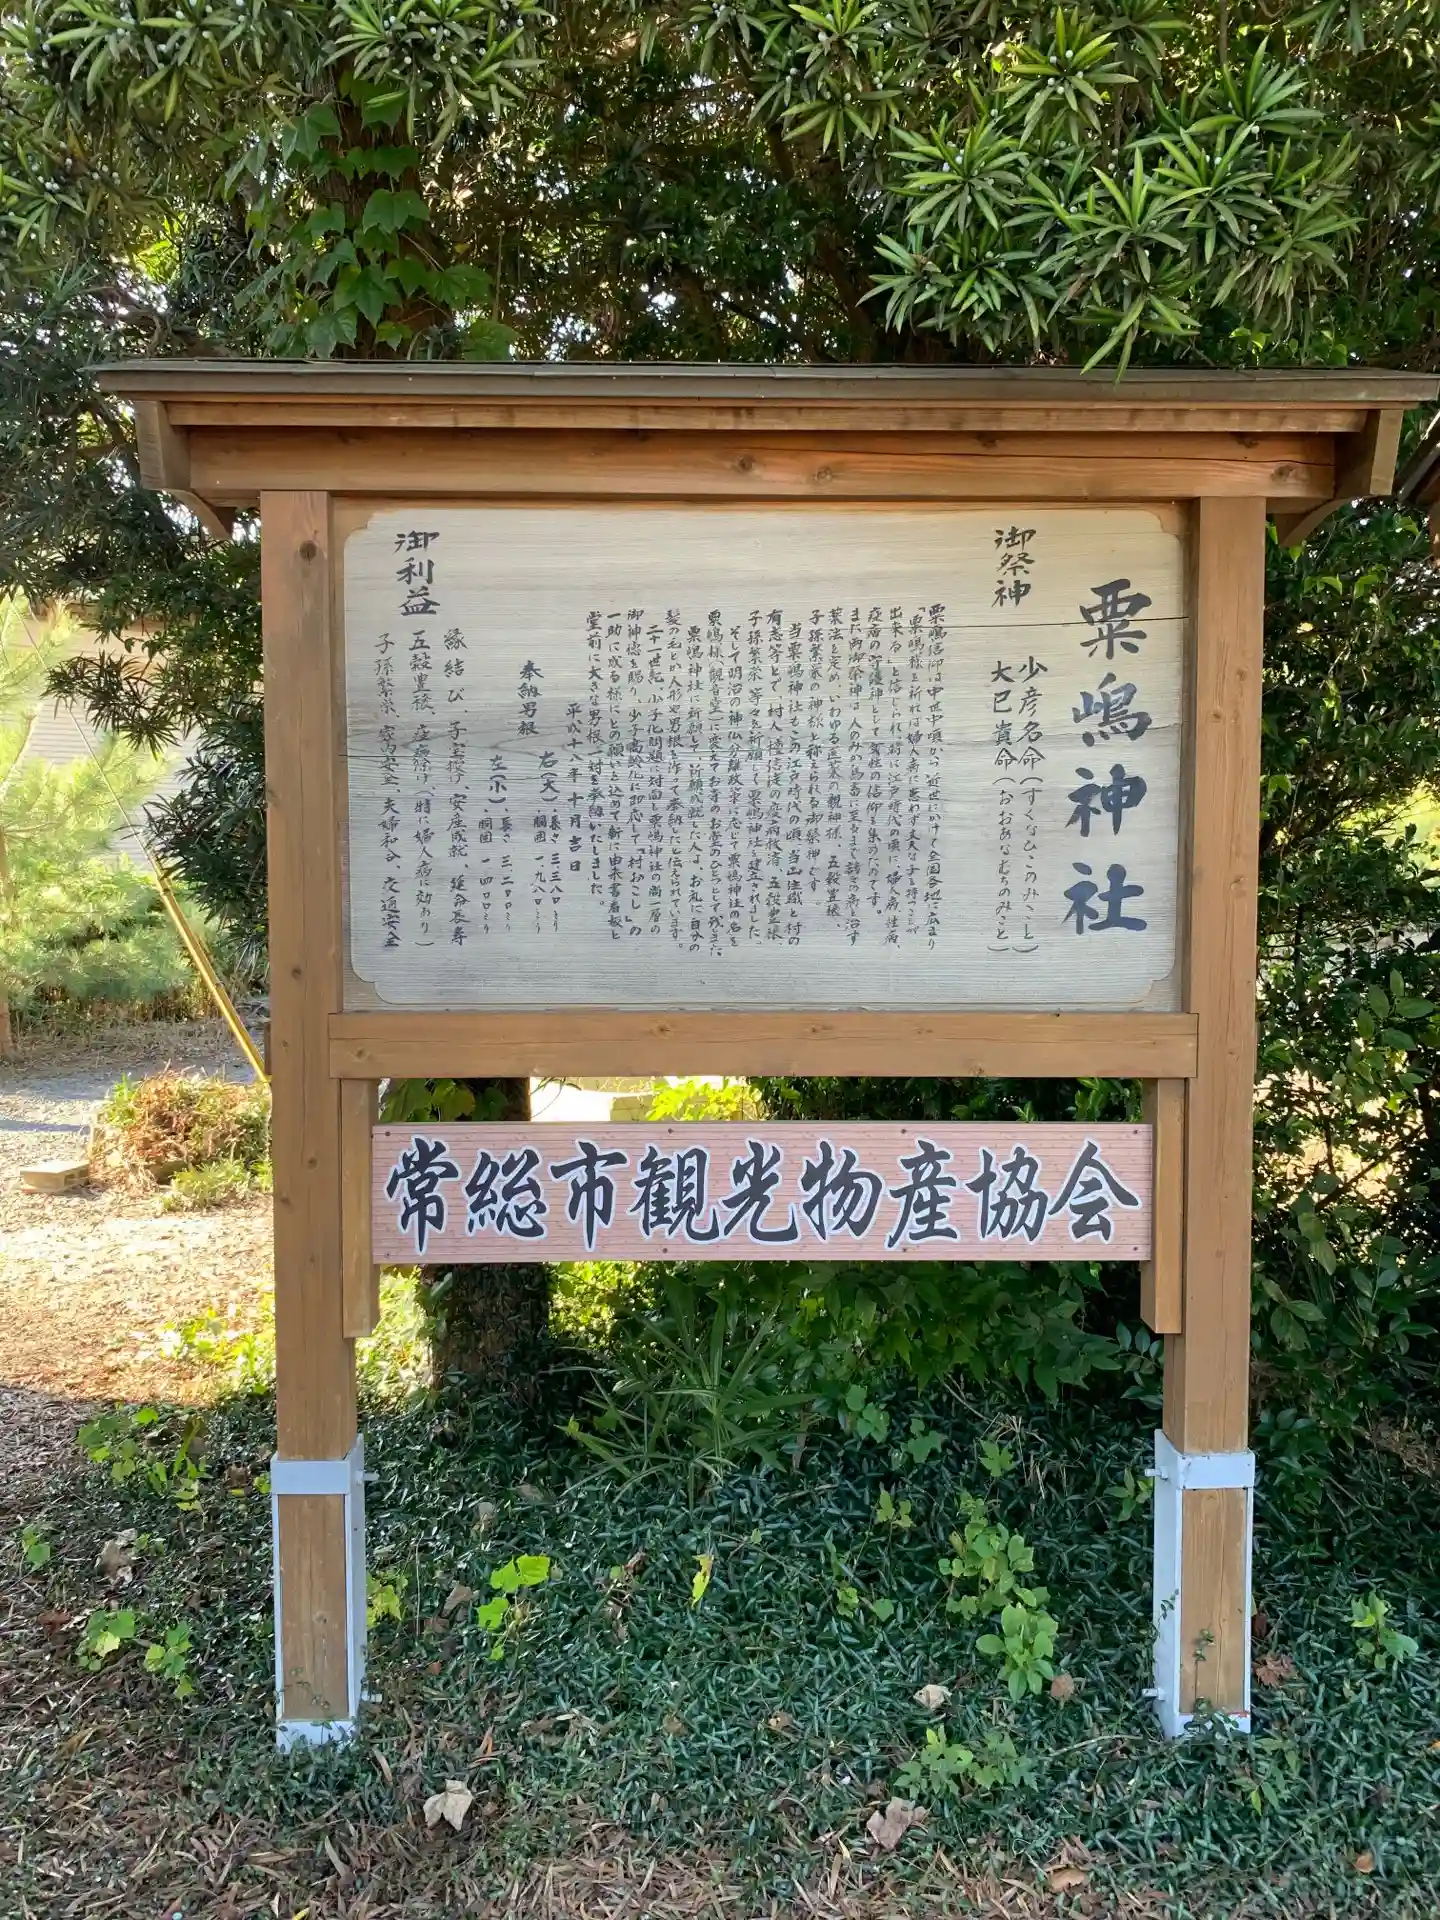 粟嶋神社
御祭神
少彦名命(すくなひこのみこと)
大巳貴命(おおあなむちのみこと)
粟嶋信仰は中世中頃から近世にかけて全国各地に広まり
「粟嶋様を祈れば婦人病に患わず丈夫な子を持つことが
出来る」と信じられ、特に江戸時代の頃に、婦人病、性病、
疫病の守護神として
の信仰を集めたのです。
また両御祭神は、人のみか鳥畜に至るまで諸々の病を治す
薬法を定め、いわゆる医薬の親神様、五穀豊穣、
子孫繁栄の神様と称えられる御祭神です。
当粟嶋神社もこの江戸時代の頃、当山住職と村の
有志等とで、村人、檀信徒の疫病救済、五穀豊穣、
子孫繁栄、等々を祈願して粟嶋神社を建立されました。
そして明治の神仏分離政策に応じて粟嶋神社の名を
粟嶋様(観音堂)に変えてお寺のお堂のひとつとして残りました。
粟嶋神社に祈願して、祈願成就した人は、お礼に自分の
髪の毛とか人形や男根を作って奉納したと伝えられています。
二十一世紀、少子化問題に対面し、粟嶋神社の尚一層の
御神徳を賜り、少子高齢化に即応して「村おこし」の
一助に成る様にとの願いを込めて新に由来書看板と
堂前に大きな男根一対を奉納いたしました。
平成十八年十月吉日
奉納男根
右(大)、長さ 三、三八〇ミリ
、胴囲 一、九八〇ミリ
左(小)、長さ 三、二〇〇ミリ
、胴囲 一、四〇〇ミリ
御利益
縁結び、子宝授け、安産成就、延命長寿
五穀豊穣、疫病除け、(特に婦人病に効あり)
子孫繁栄、家内安全、夫婦和合、交通安全
常総市観光物産協会